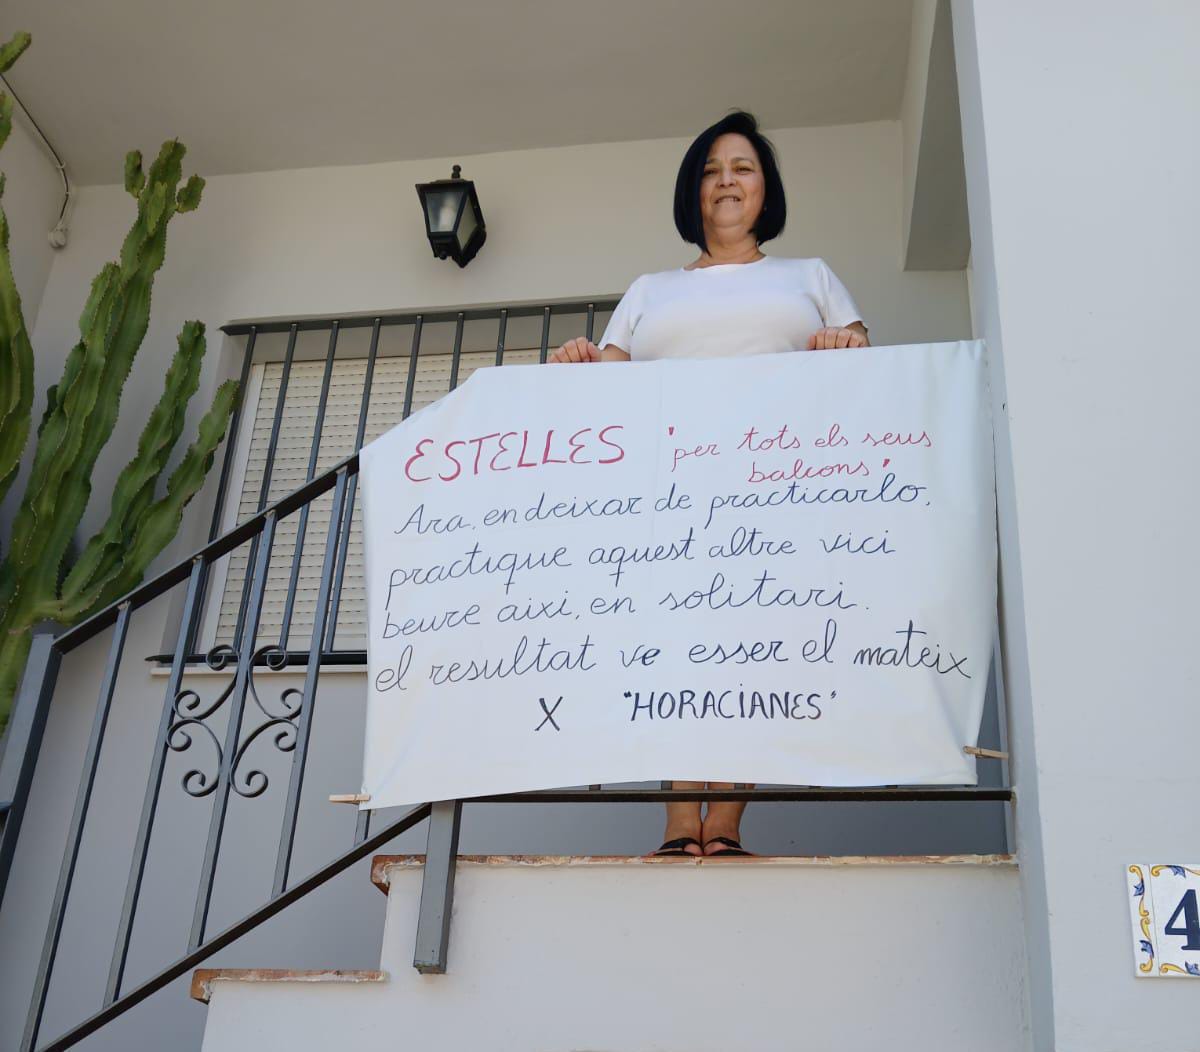 ESTELLES 'per tots els seus
balcons'
Ara, en deixar de practicarlo,
practique aquest altre vici
beure aixi, en solitari.
el resultat ve esser el mateix
X "HORACIANES"
4